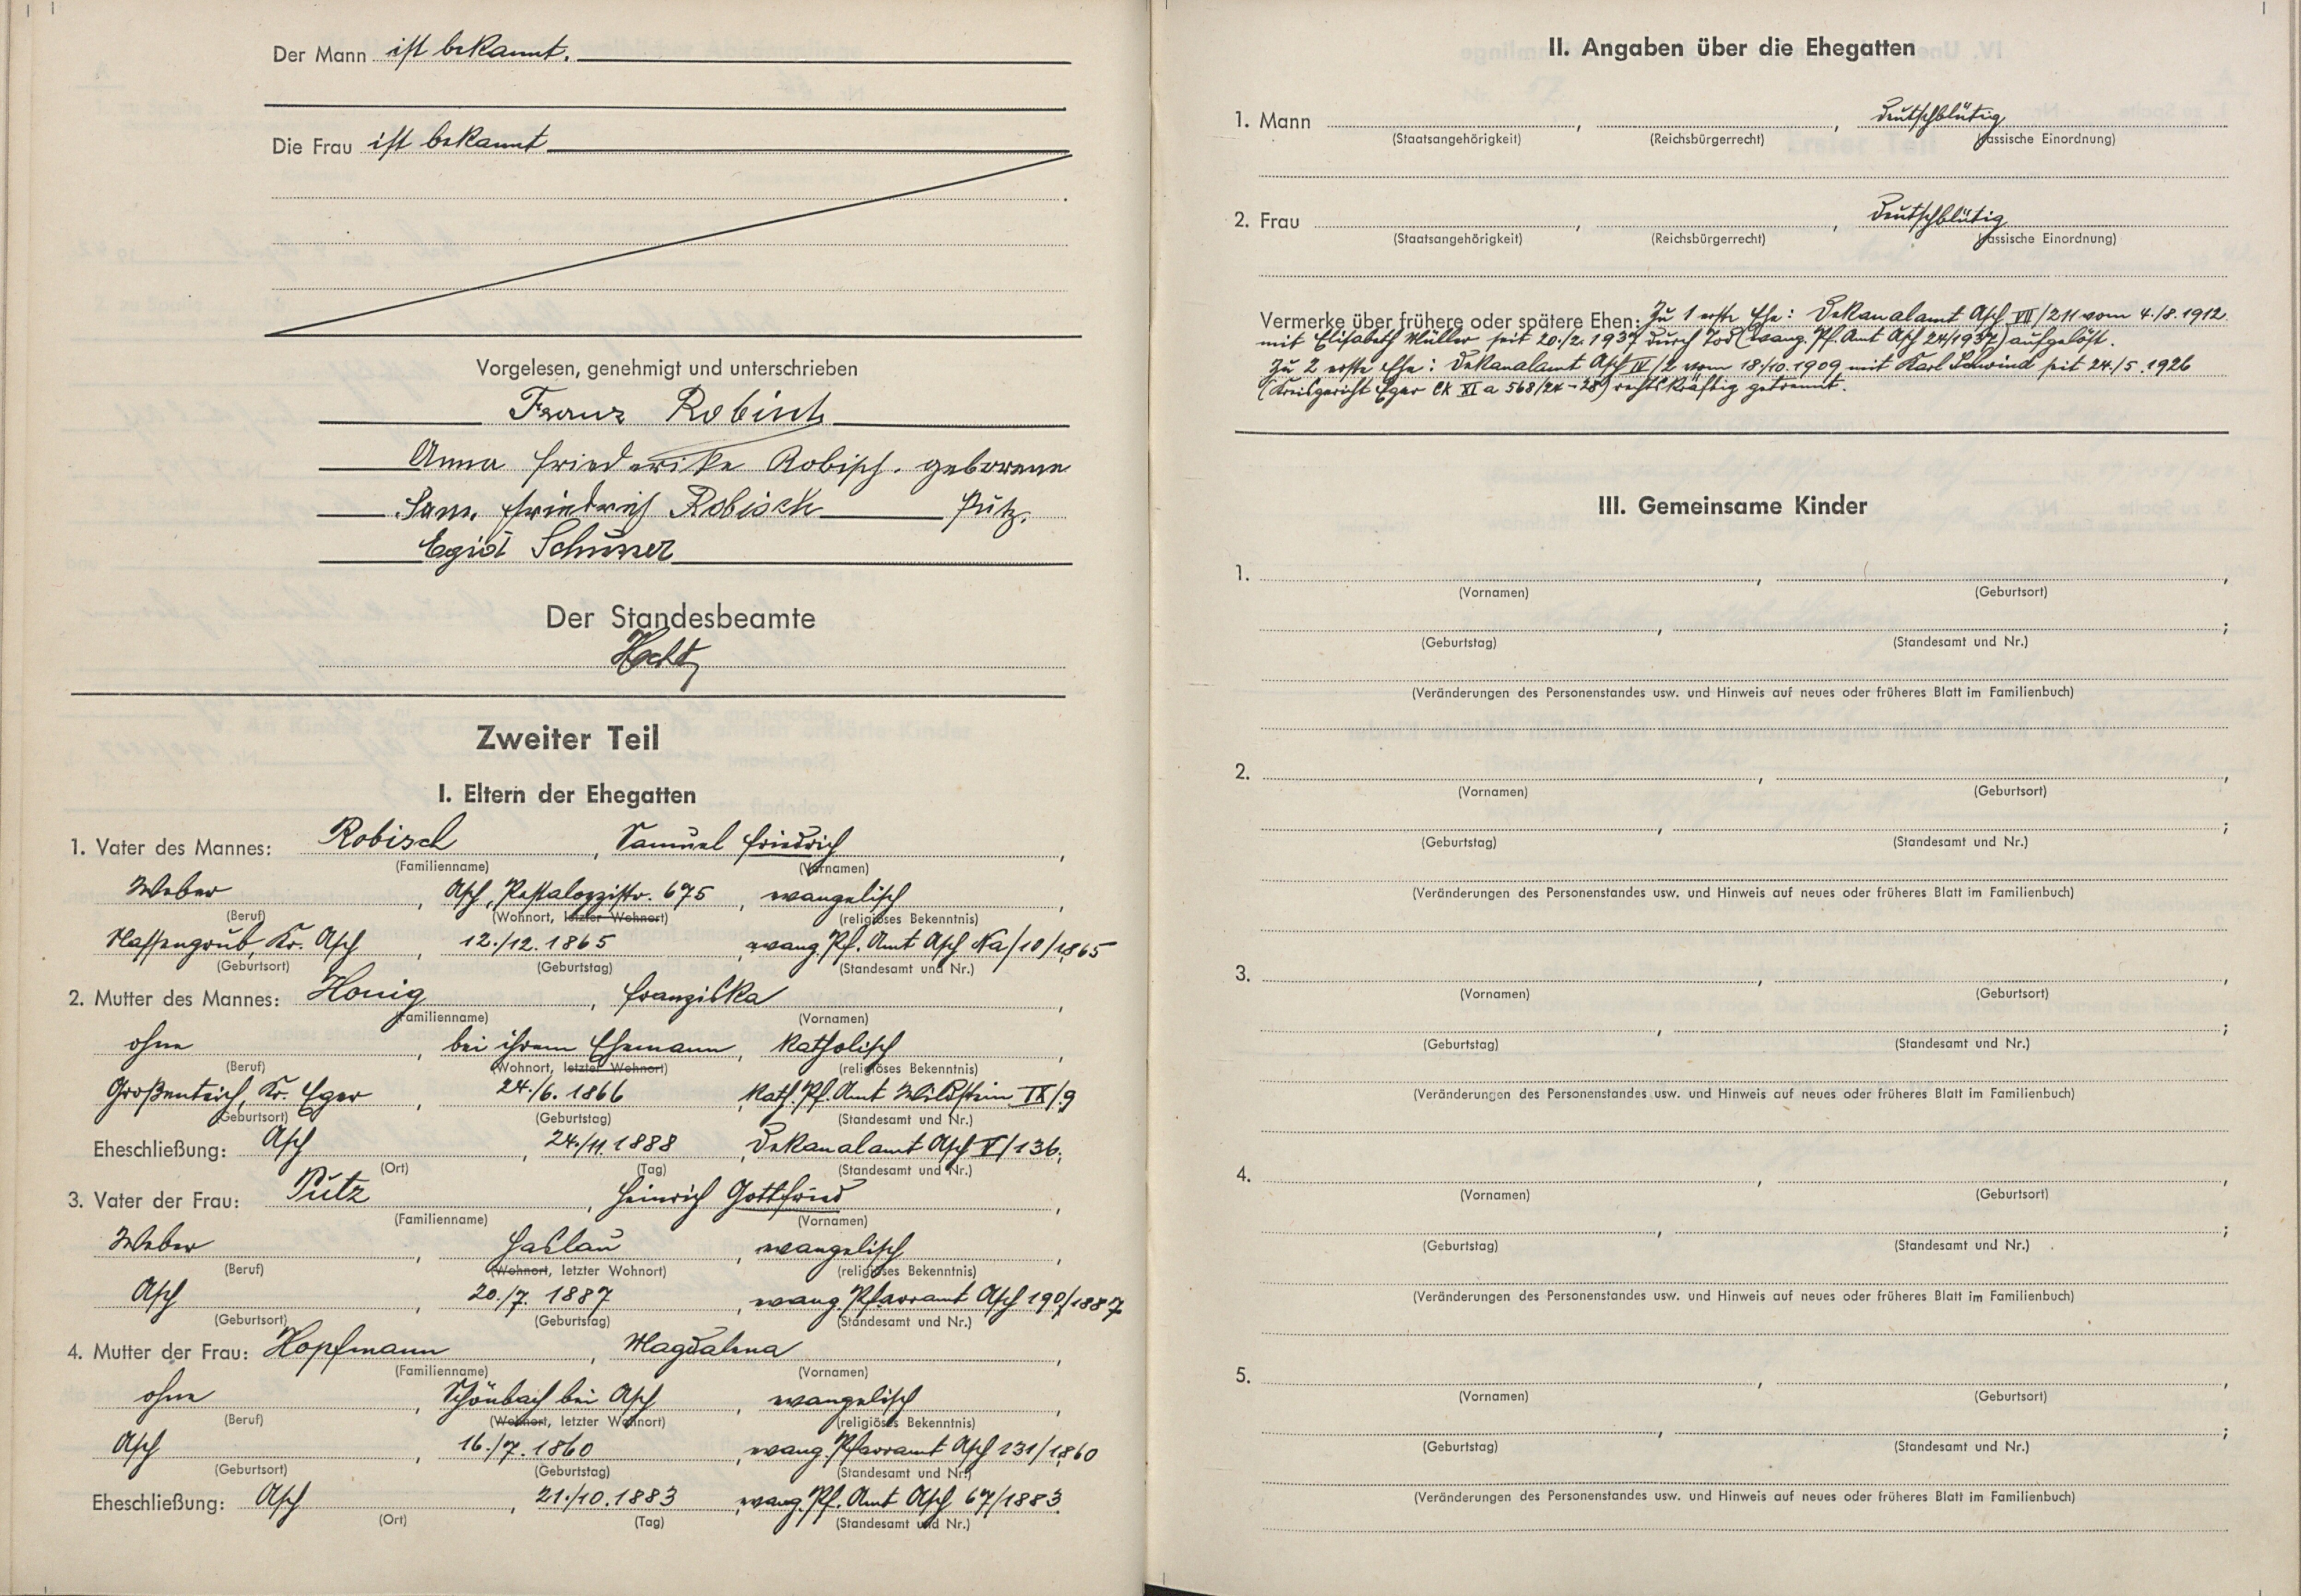 Der Mann ist bekannt.
Die Frau ist bekannt
Vorgelesen, genehmigt und unterschrieben
Franz Robisch
Anna Friederike Robisch. geborene
Sam. Friedrich Robisch Pütz.
Egid
Der Standesbeamte
Zweiter Teil
I. Eltern der Ehegatten
1. Vater des Mannes: Robisch, Samuel Friedrich,
(Familienname) (Vornamen)
Weber, Asch, Pestalozzistr. 675, evangelisch,
(Beruf) (Wohnort, letzter Wohnort) (religiöses Bekenntnis)
Nassengrub, Kr. Asch, 12./12. 1865, evang. Pf. Amt Asch Na/10/1865
(Geburtsort) (Geburtstag) (Standesamt und Nr.)
2. Mutter des Mannes: Honig, Franziska,
(Familienname) (Vornamen)
ohne, bei ihrem Ehemann, katholisch,
(Beruf) (Wohnort, letzter Wohnort) (religiöses Bekenntnis)
Großenteich, Kr. Eger, 24./6. 1866, kath. Pf. Amt Wildstein IX/9
(Geburtsort) (Geburtstag) (Standesamt und Nr.)
Eheschließung: Asch, 24./11. 1888, Dekanalamt Asch V/136;
(Ort) (Tag) (Standesamt und Nr.)
3. Vater der Frau: Pütz, Heinrich Gottfried,
(Familienname) (Vornamen)
Weber, Haslau, evangelisch,
(Beruf) (Wohnort, letzter Wohnort) (religiöses Bekenntnis)
Asch, 20./7. 1887, evang. Pfarramt Asch 190/1887
(Geburtsort) (Geburtstag) (Standesamt und Nr.)
4. Mutter der Frau: Hopfmann, Magdalena,
(Familienname) (Vornamen)
ohne, Schönbach bei Asch, evangelisch,
(Beruf) (Wohnort, letzter Wohnort) (religiöses Bekenntnis)
Asch, 16./7. 1860, evang. Pfarramt Asch 131/1860
(Geburtsort) (Geburtstag) (Standesamt und Nr.)
Eheschließung: Asch, 21./10. 1883, evang. Pf. Amt Asch 67/1883
(Ort) (Tag) (Standesamt und Nr.)
II. Angaben über die Ehegatten
1. Mann , , deutschblütig
(Staatsangehörigkeit) (Reichsbürgerrecht) (rassische Einordnung)
2. Frau , , deutschblütig
(Staatsangehörigkeit) (Reichsbürgerrecht) (rassische Einordnung)
Vermerke über frühere oder spätere Ehen: Zu 1 erste Ehe: Dekanalamt Asch VII/211 vom 4./8. 1912
mit Elisabeth Müller seit 20./2. 1937 durch Tod (evang. Pf. Amt Asch 24/1937) aufgelöst.
Zu 2 erste Ehe: Dekanalamt Asch IV/2 vom 18./10. 1909 mit Karl Schwind seit 24./5. 1926
(Kreisgericht Eger Ck XI a 568/24-28) rechtskräftig getrennt.
III. Gemeinsame Kinder
1. , ,
(Vornamen) (Geburtsort)
, ;
(Geburtstag) (Standesamt und Nr.)
(Veränderungen des Personenstandes usw. und Hinweis auf neues oder früheres Blatt im Familienbuch)
2. , ,
(Vornamen) (Geburtsort)
, ;
(Geburtstag) (Standesamt und Nr.)
(Veränderungen des Personenstandes usw. und Hinweis auf neues oder früheres Blatt im Familienbuch)
3. , ,
(Vornamen) (Geburtsort)
, ;
(Geburtstag) (Standesamt und Nr.)
(Veränderungen des Personenstandes usw. und Hinweis auf neues oder früheres Blatt im Familienbuch)
4. , ,
(Vornamen) (Geburtsort)
, ;
(Geburtstag) (Standesamt und Nr.)
(Veränderungen des Personenstandes usw. und Hinweis auf neues oder früheres Blatt im Familienbuch)
5. , ,
(Vornamen) (Geburtsort)
, ;
(Geburtstag) (Standesamt und Nr.)
(Veränderungen des Personenstandes usw. und Hinweis auf neues oder früheres Blatt im Familienbuch)